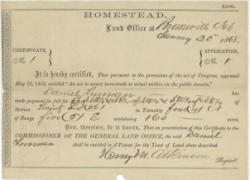 HOMESTEAD.
Land Office at Brownville Neb
January 20th 1868.
CERTIFICATE,
No 1
APPLICATION,
No 1
It is hereby certified, That pursuant to the provisions of the act of Congress, approved
May 20, 1862, entitled "An act to secure homesteads to actual settlers on the public domain,"
Daniel Freeman has
made payment in full for of
Section in Township four (4) N
of Range five (5) E containing 160 acres.
Now, therefore, be it known, That on presentation of this Certificate to the
COMMISSIONER OF THE GENERAL LAND OFFICE, the said Daniel
Freeman shall be entitled to a Patent for the Tract of Land above described.
Henry M. Atkinson
Register.